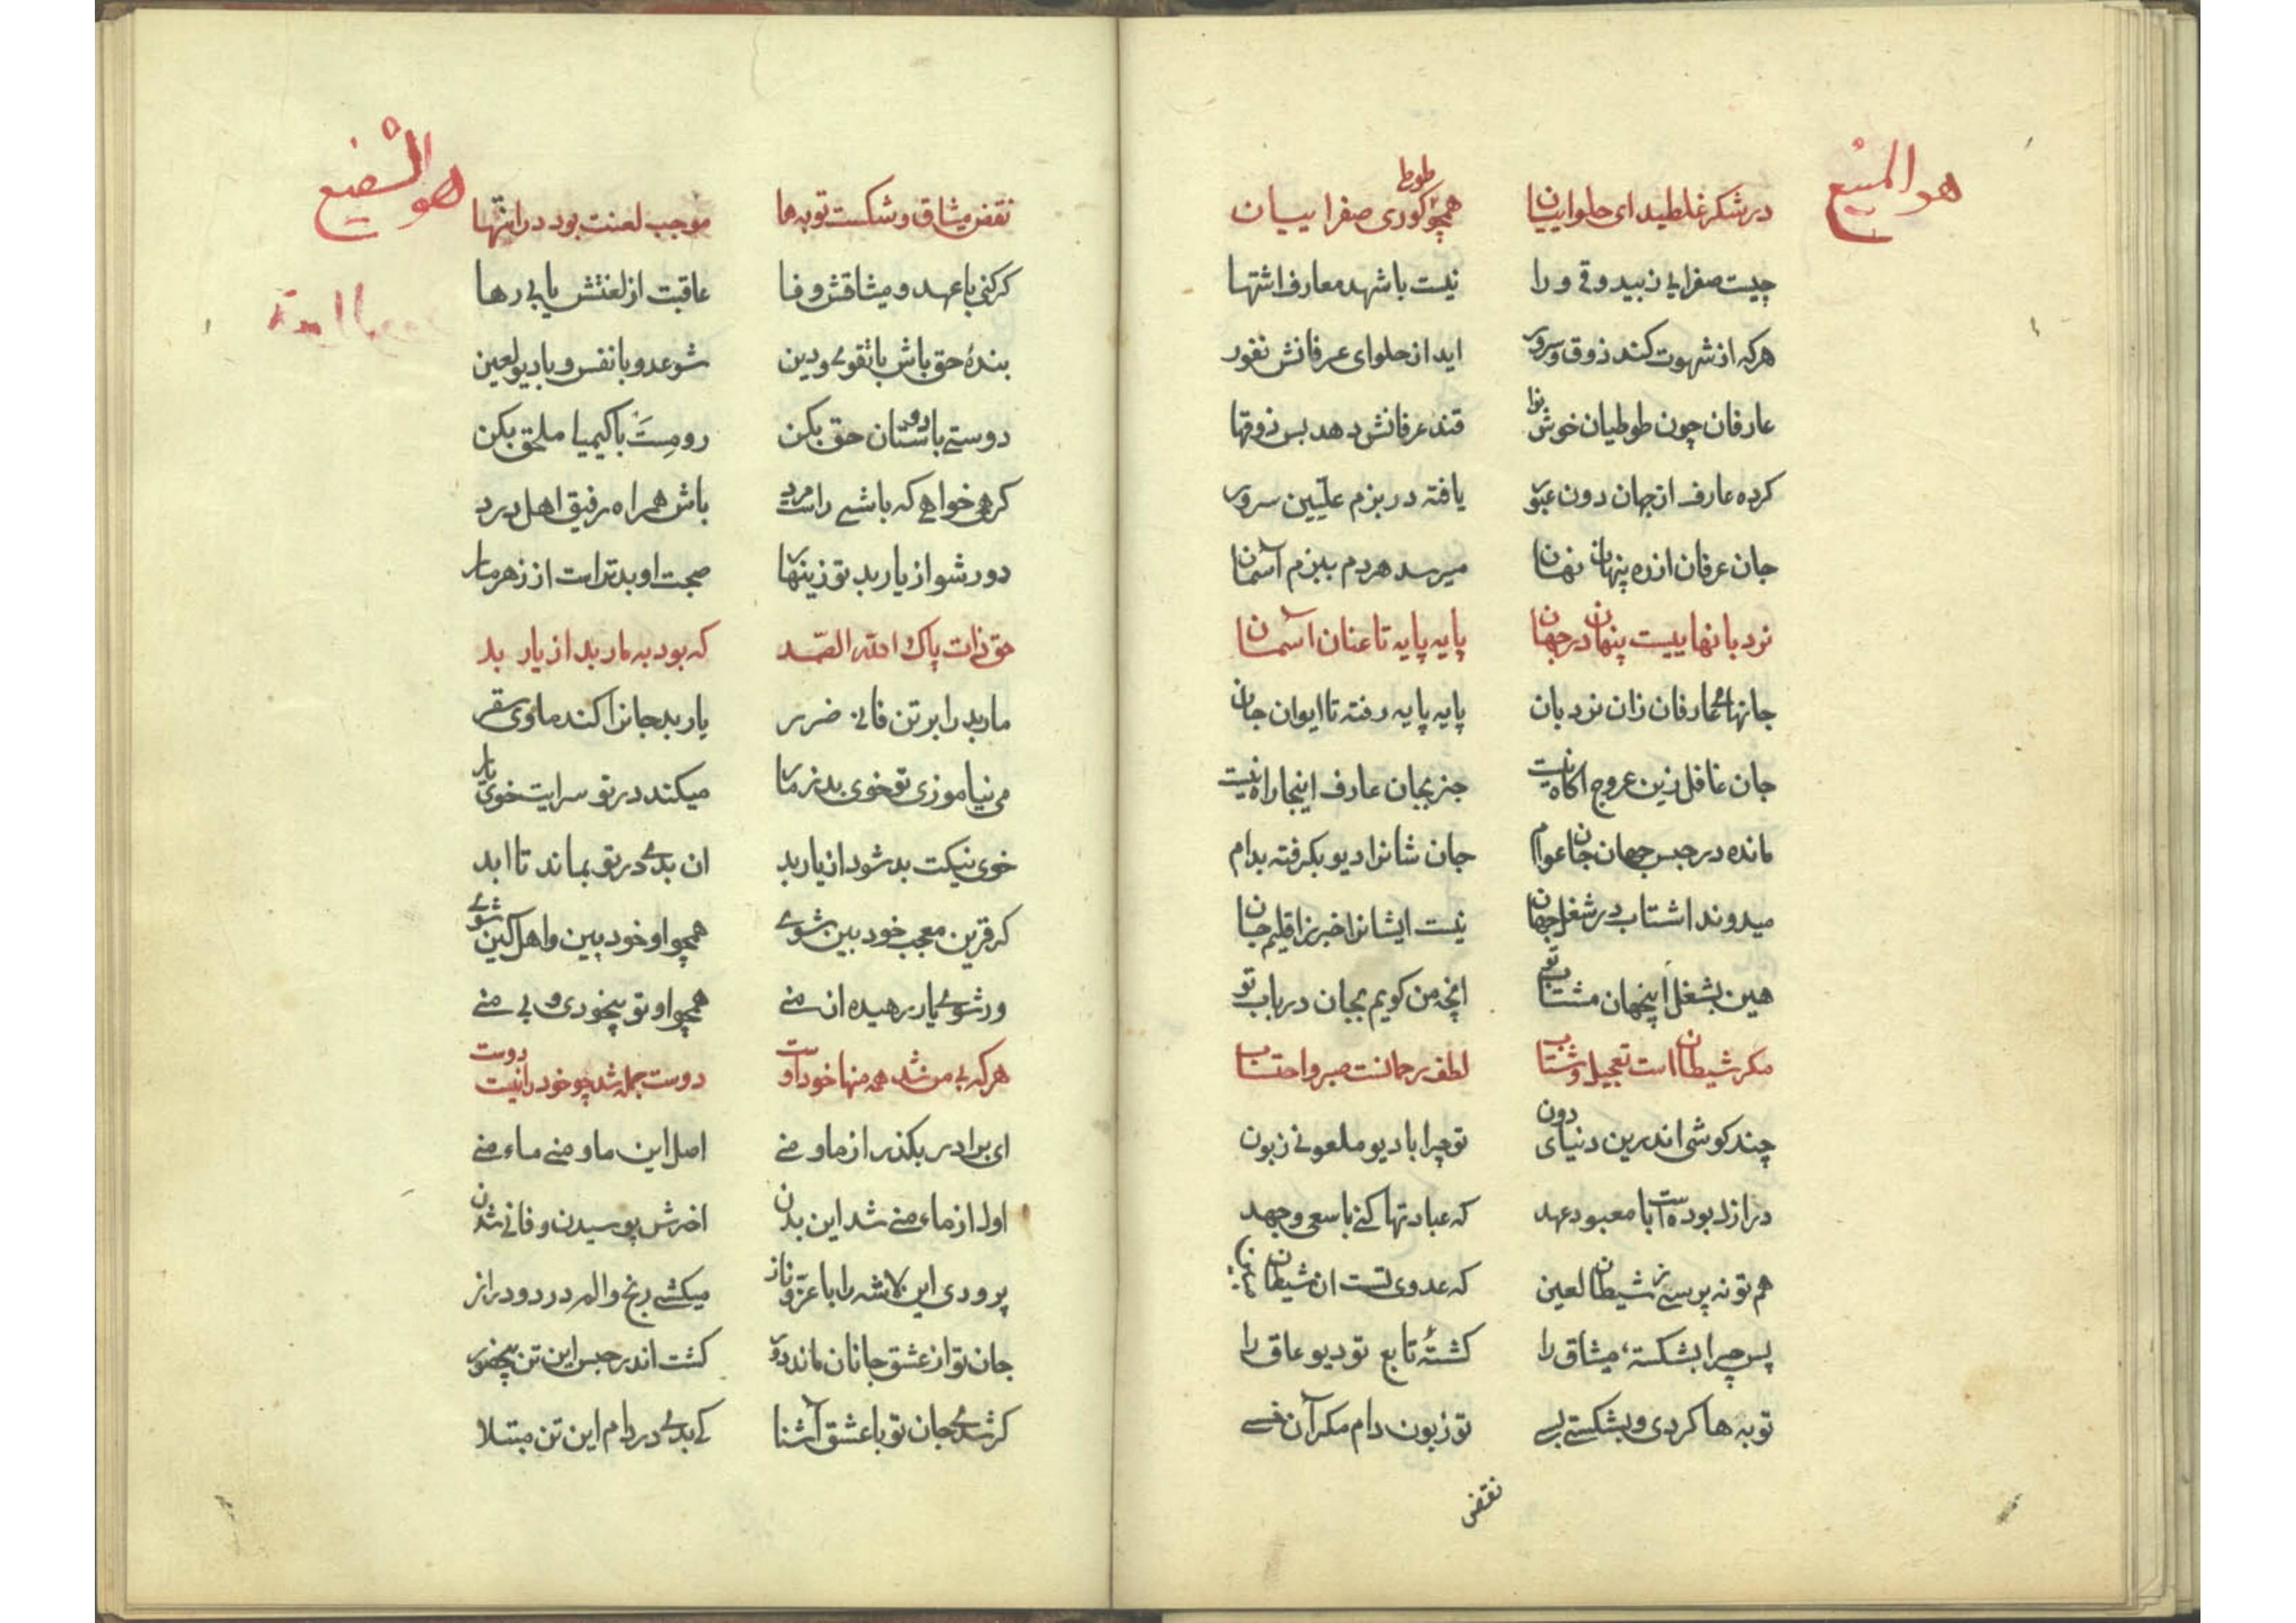 هو المنیع
در شکر غلطید ای حلواییان همچو طوطی کوری صفراییان
چیست صفرایی ز بیذوقی ورا نیست با شهد معارف اشتها
هرکه از شهوت کند ذوق و سرور اید از حلوای عرفانش نفور
عارفان چون طوطیان خوش نوا قند عرفانش دهد بس ذوقها
کرده عارف از جهان دون عبور یافته در بزم علیین سرور
جان عرفان از ره پنهان نهان میرسد هر دم ببزم آسمان
نردبانهاییست پنهان در جهان پایه پایه تا عنان آسمان
جانهای عارفان زان نردبان پایه پایه رفته تا ایوان جان
جان غافل زین عروج اکاه نیست جز بجان عارف اینجا راه نیست
مانده در حبس جهان جان عوام جان شانرا دیو بکرفته بدام
میدوند اشتاب در شغل جهان نیست ایشانرا خبر ز اقلیم جان
هین بشغل اینجهان مشتاب تو انچه من کویم بجان دریاب تو
مکر شیطان است تعجیل و شتاب لطف رحمانست صبر و احتساب
چند کوشی اندرین دنیای دون تو چرا با دیو ملعونی زبون
در ازل بوده است با معبود عهد که عبادتها کنی با سعی و جهد
هم تو نه پرستی ز شیطان لعین که عدوی تست ان شیطان
پس چرا بشکستهٔ میثاق را کشتهٔ تابع تو دیو عاق را
توبه ها کردی و بشکستی بسی تو زبون دام مکر آن خسی
نقض
هو الشفیع
نقض میثاق و شکست توبه ها موجب لعنت بود در انتها
کر کنی با عهد و میثاقش وفا عاقبت از لعنتش یابی رها
بندهٔ حق باش با تقوی و دین شو عدو با نفس و با دیو لعین
دوستی با دوستان حق بکن رو مست با کیمیا ملحق بکن
کر همی خواهی که باشی راست مرد باش همراه رفیق اهل درد
دور شو از یار بد تو زینهار صحبت او بدتر است از زهر مار
حق ذات پاک الله الصمد که بود به مار بد از یار بد
مار بد را بر تن فانی ضرر یار بد جانرا کند ماوی سقر
می نیاموزی تو خوی بد ز مار میکند در تو سرایت خوی یار
خوی نیکت بد شود از یار بد ان بدی در تو بماند تا ابد
کر قرین معجب خود بین شوی همچو او خود بین و اهل کین شوی
ور شوی یار رهیده از منی همچو او تو بیخودی و بی منی
هرکه بی من شد همه منها خود اوست دوست جمله شد چو خود را نیست دوست
ای برادر بکذر از ما و منی اصل این ما و منی ماء منی
اول از ماء منی شد این بدن اخرش پوسیدن و فانی شدن
پروری این لاشه را با عز و ناز میکشی رنج و الم در دور دراز
جان تو از عشق جانان مانده دور کشت اندر حبس این تن بیحضور
کر شدی جان تو با عشق آشنا کی بدی در دام این تن مبتلا